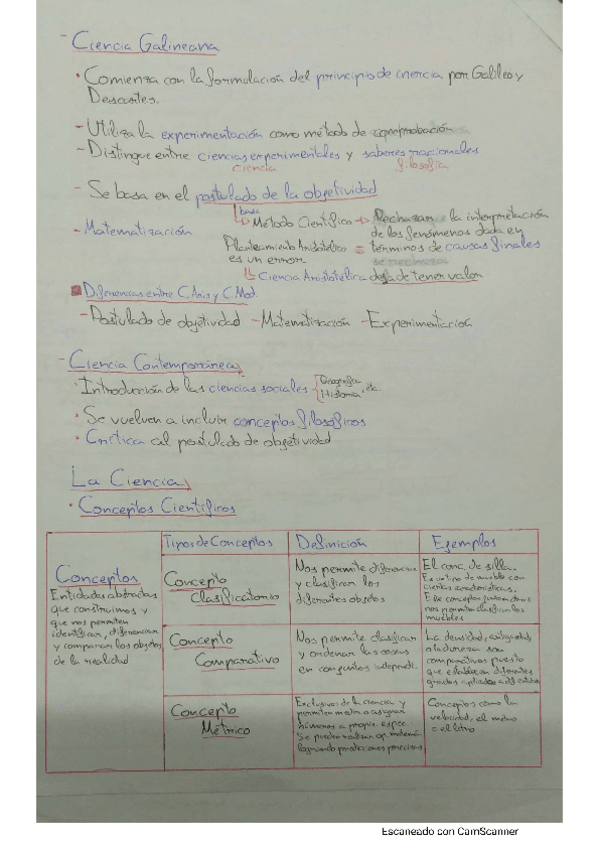 - Ciencia Galineana
• Comienza con la formulación del principio de inercia por Galileo y
Descartes.
- Utiliza la experimentación como método de comprobación
- Distingue entre ciencias experimentales y saberes racionales
ciencia filosofía
- Se basa en el postulado de la objetividad
base
→ Método Científico → Rechazar la interpretación
- Matematización de los fenómenos dada en
Planteamiento Aristotélico = términos de causas finales
es un error. se rechaza
↳ Ciencia Aristotélica deja de tener valor
Diferencias entre C.Aris y C.Mod.
- Postulado de objetividad - Matematización - Experimentación
- Ciencia Contemporánea
• Introducción de las ciencias sociales Geografía
Historia, etc.
• Se vuelven a incluir conceptos filosóficos
• Crítica al postulado de objetividad
La Ciencia
• Conceptos Científicos
Tipos de Conceptos Definición Ejemplos
Conceptos
Entidades abstractas
que construimos y
que nos permiten
identificar, diferenciar
y comparar los objetos
de la realidad
Concepto
Clasificatorio
Nos permite diferenciar
y clasificar los
diferentes objetos
El conc. de silla.
Es un tipo de mueble con
ciertas características.
Este concepto junto a otros
nos permite clasificar los
muebles
Concepto
Comparativo
Nos permite clasificar
y ordenar las cosas
en conjuntos
La densidad,
o la dureza son
comparativos puesto
que establecen diferentes
grados
Concepto
Métrico
Exclusivos de la ciencia y
permiten medir o asignar
números a propie. especí.
Se pueden realizar op. matemá.
logrando predicciones precisas
Conceptos como la
velocidad, el metro
o el litro
Escaneado con CamScanner